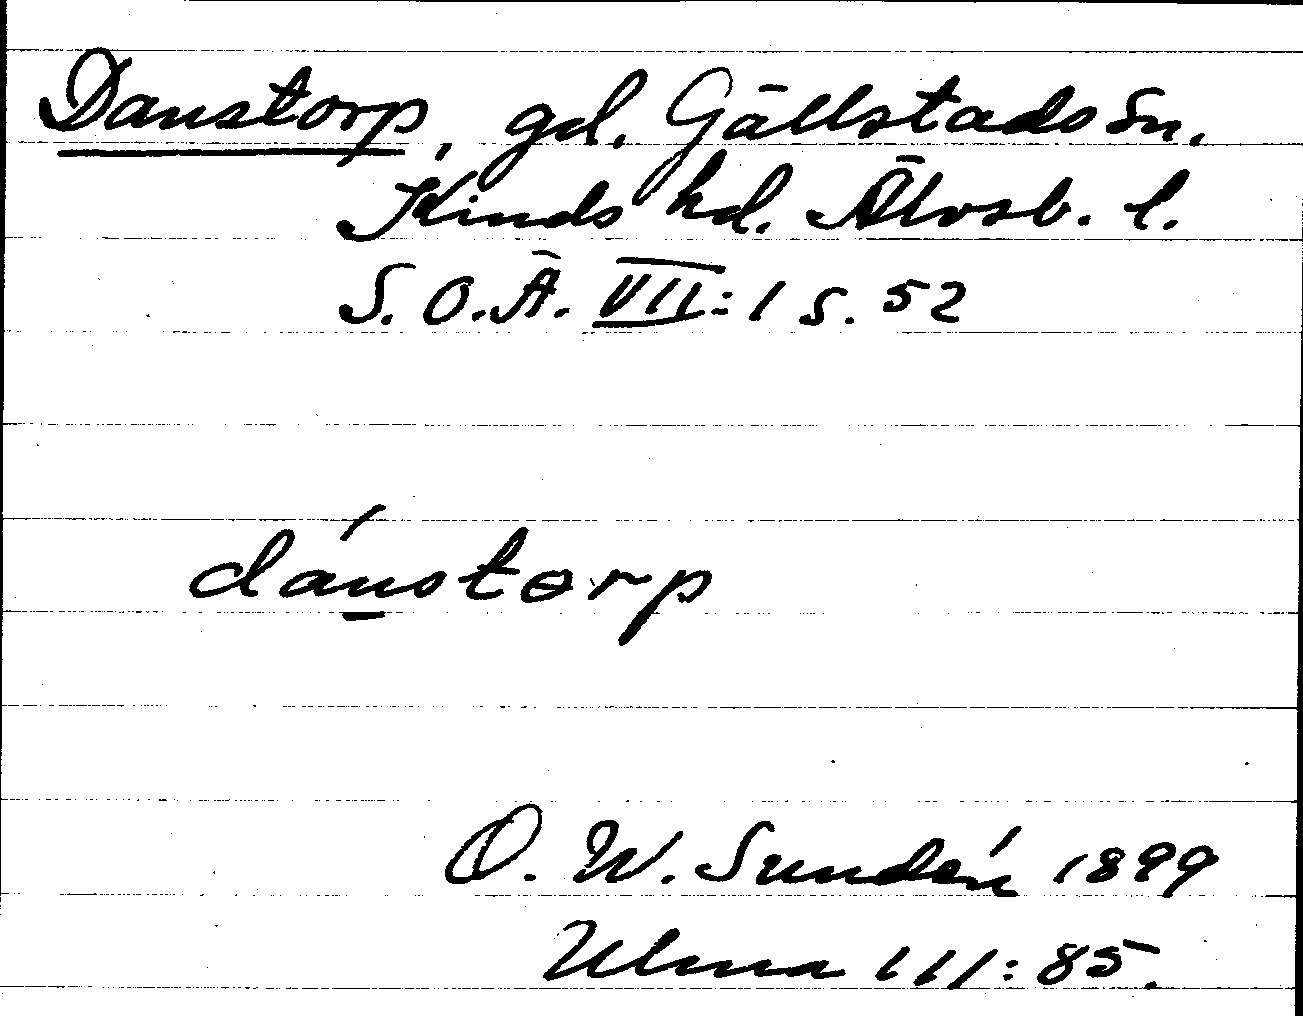 Danstorp, gd. Gällstads sn.
Kinds hd. Älvsb. l.
S. O. Ä. VII: 1 s. 52
dánstorp
O. W. Sundén 1899
Ulma 111: 85.